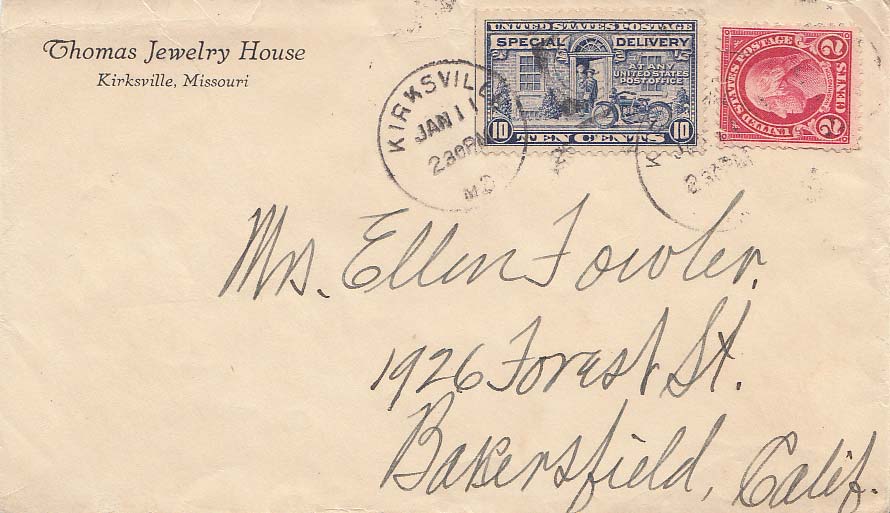 Thomas Jewelry House
Kirksville, Missouri
UNITED STATES POSTAGE
SPECIAL DELIVERY
AT ANY
UNITED STATES
POST OFFICE
10 TEN CENTS 10
UNITED STATES POSTAGE
2 2
KIRKSVILLE
JAN 11
2 30 PM
MO
Mrs. Ellen Fowler.
1926 Forest St.
Bakersfield, Calif.